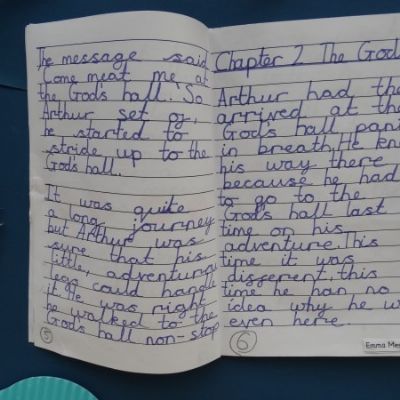 The message said
Come meat me at
the Gods hall. So
Arthur set of,
he started to
stride up to the
God's hall.
It was quite
a long journey
but Arthur was
sure that his
little, adventurous
legs could handle
it. He was right
he walked to the
Gods hall non-stop
5
Chapter 2 The God
Arthur had the
arrived at the
Gods hall pani
in breath, He kne
his way there
because he had
to go to the
Gods hall last
time on his
adventure. This
time it was
different, this
time he han no
idea why he w
even here.
6
Emma Mea